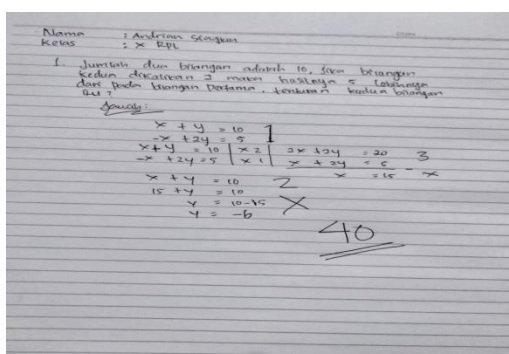 Nama : Andrian
Kelas : X RPL
1. Jumlah dua bilangan adalah 10, jika bilangan
kedua dikalikan 2 maka hasilnya 5 lebihnya
dari pada bilangan pertama. tentukan kedua bilangan
Jawab :
x + y = 10 1
-x + 2y = 5
x + y = 10 | x 2 | 2x + 2y = 20
-x + 2y = 5 | x 1 | x + 2y = 5 - 3
x = 15 x
x + y = 10 2
15 + y = 10
y = 10-15 X
y = -6
40